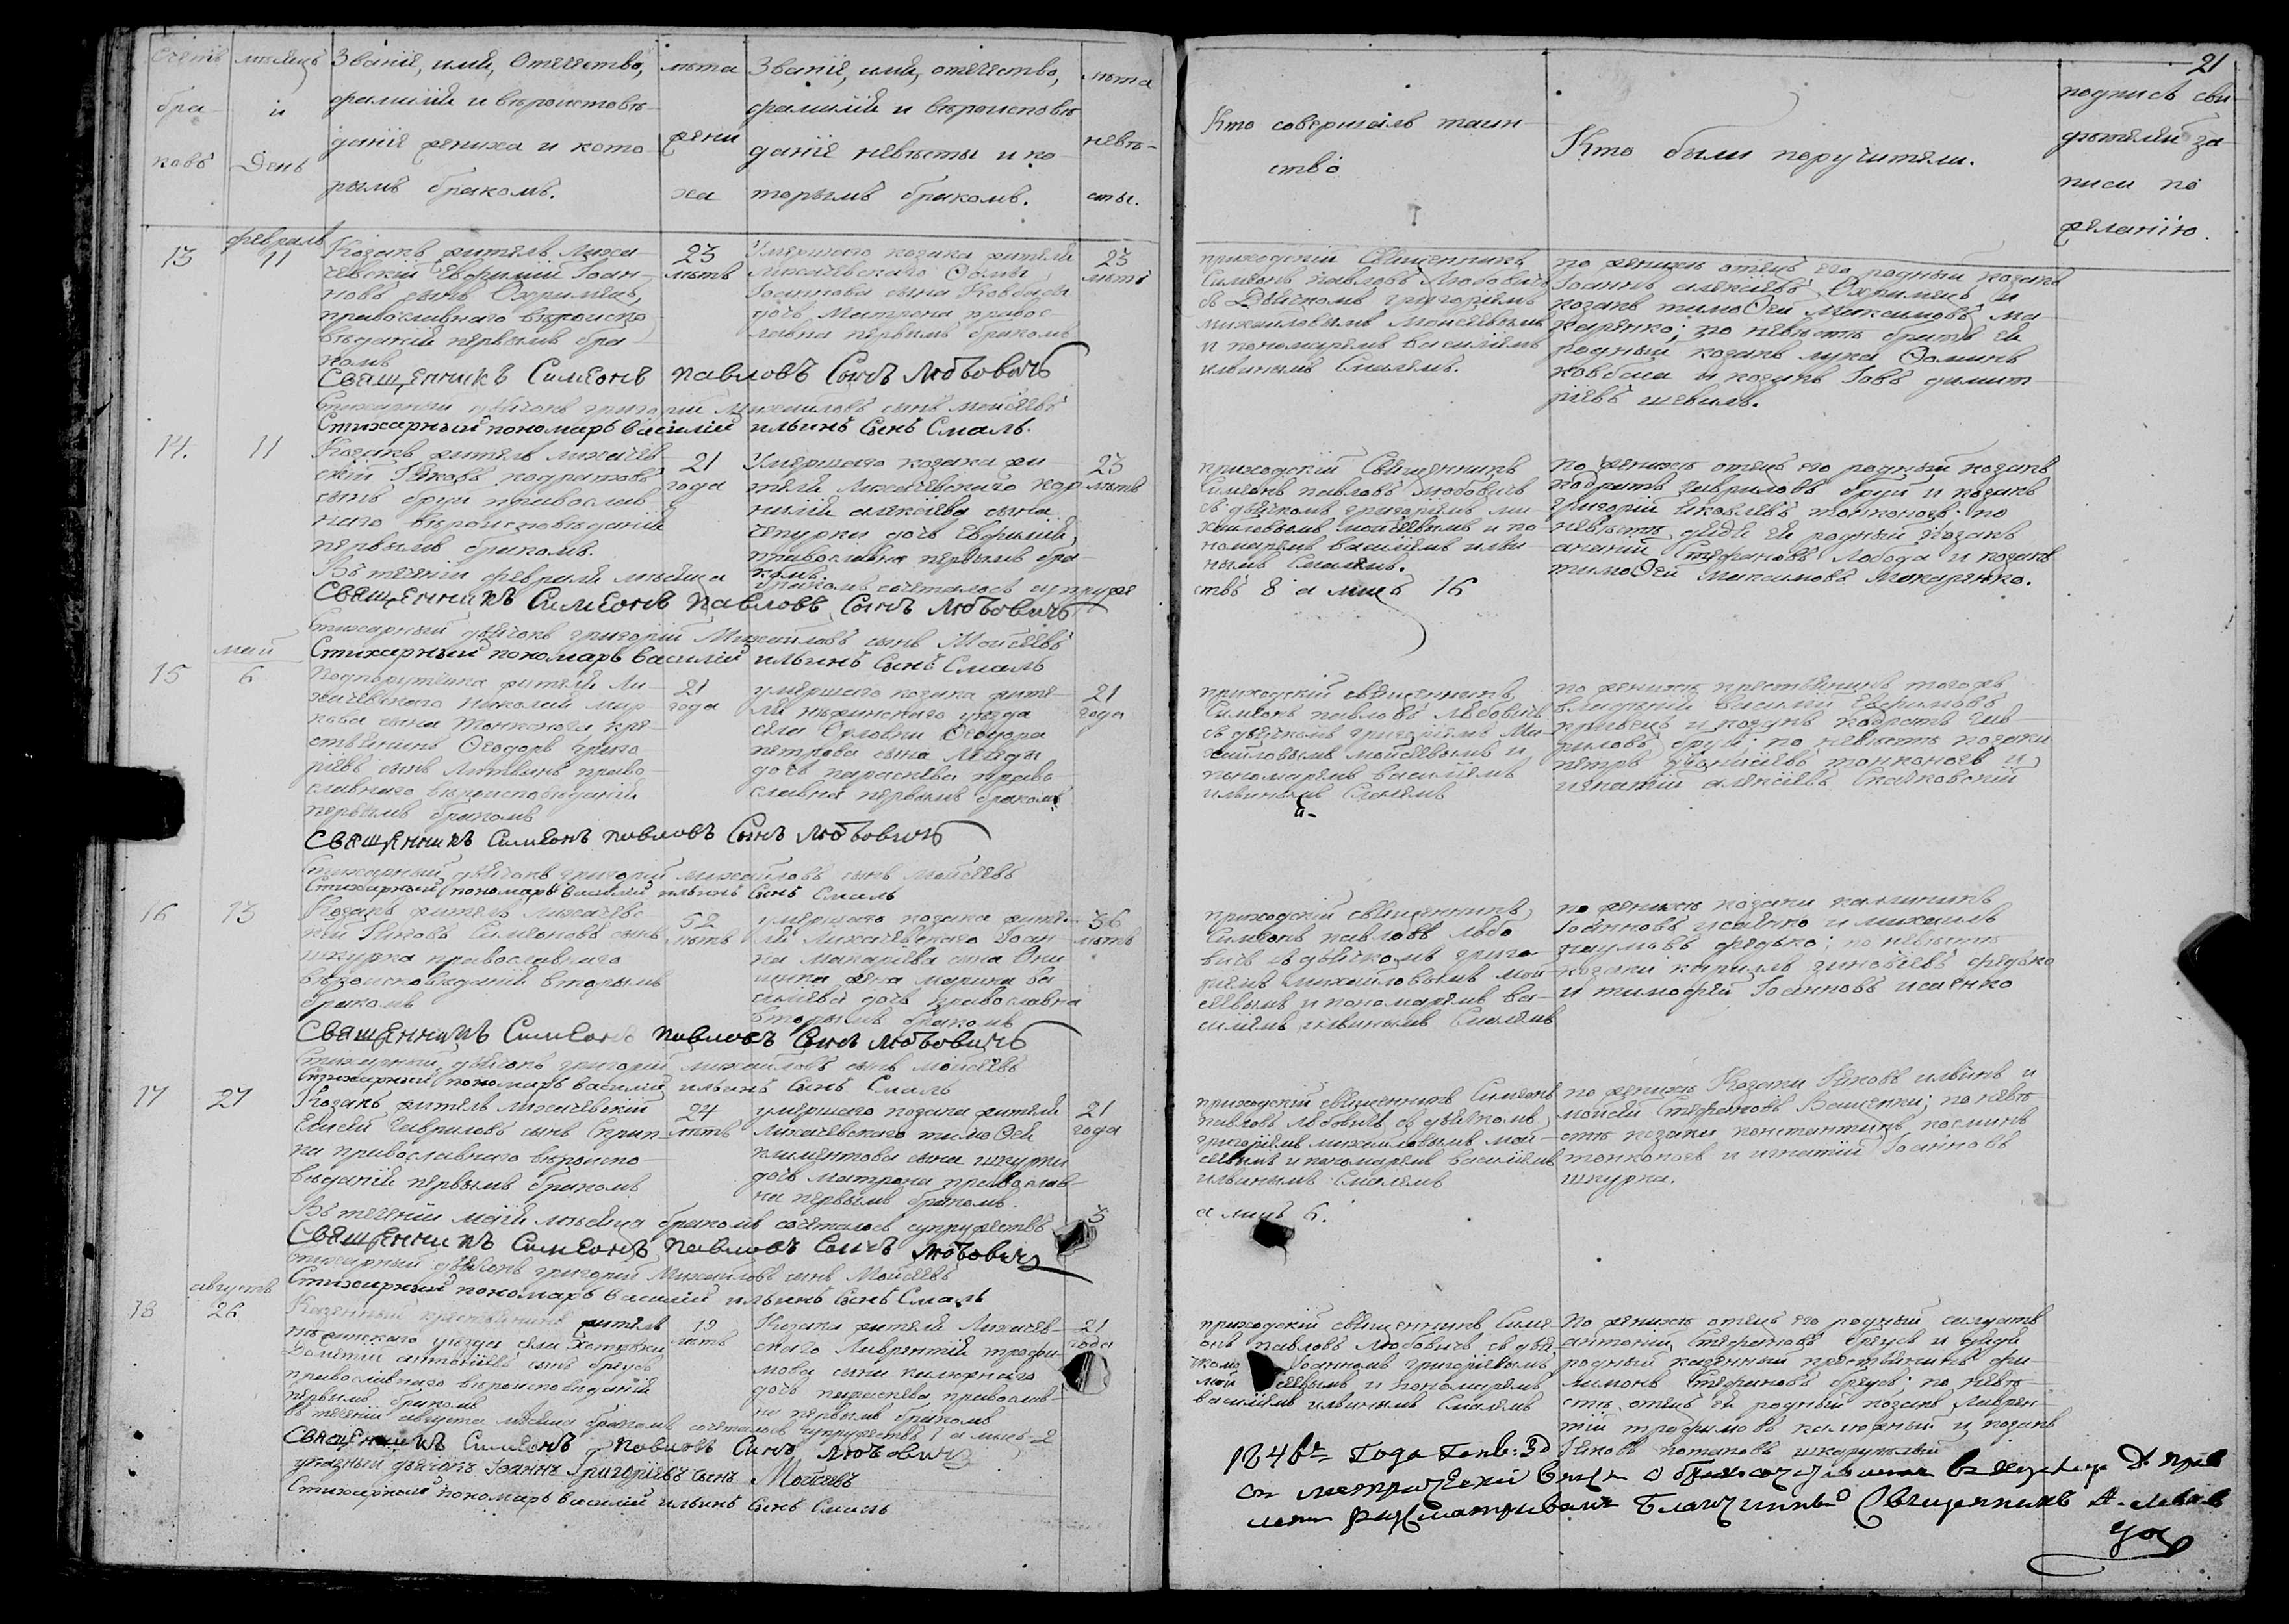 Счетъ бра-ковъ
мѣсяцъ и День
Званіе, имя, Отечество,
фамилія и вѣроисповѣ-
даніе жениха и кото-
рымъ бракомъ.
лѣта жени ха
Званіе, имя, отечество,
фамилія и вѣроисповѣ
даніе невѣсты и ко-
торымъ бракомъ.
лѣта невѣ-сты.
Кто совершалъ таин-
ство
Кто были поручители.
21
подпись сви-
дѣтелей за-
писи по
желанію.
13
февраль
11
Козакъ житель Лиха-
чевскій Евфимій Іоан-
новъ сынъ Охримецъ,
православнаго вѣроиспо
вѣданія первымъ бра-
комъ
23
лѣтъ
Умершаго козака жителя
Лихачевскаго Ѳомы
Іоаннова сына Ковбасы
дочь Матрона правос-
лавна первымъ бракомъ
23
лѣтъ
приходскій Священникъ
Симеонъ павловъ Любовичъ
съ Дьячкомъ григоріемъ
михайловымъ Моисеевымъ
и пономаремъ василіемъ
ильинымъ Смалемъ.
по женихѣ отецъ его родный козакъ
Іоаннъ алексіевъ Охримецъ и
козакъ тимоѲей Максимовъ ма-
каренко; по невѣстѣ братъ ея
родный козакъ лука Ѳоминъ
ковбаса и козакъ Іовъ димит-
ріевъ шевель.
Священникъ Симеонъ павловъ Сынъ Любовичъ
Стихарный дьячокъ григорій Михайловъ сынъ моисеевъ
Стихарный пономарь василій ильинъ Сынъ Смаль.
14.
11
Козакъ житель лихачев-
скій Яковъ кодратовъ
сынъ бруй православ-
наго вѣроисповѣданія
первымъ бракомъ.
21
года
Умершаго козака жи-
теля Лихачевскаго кор-
нилія алексіева сына
чепурки дочь Евфимія,
православна первымъ бра-
комъ.
23
лѣтъ
приходскій Священникъ
Симеонъ павловъ Любовичъ
съ дьячкомъ григоріемъ ми-
хайловымъ моисеевымъ и по-
номаремъ василіемъ ильи-
нымъ Смалемъ.
по женихѣ отецъ его родный козакъ
кодратъ гавриловъ бруй и козакъ
григорій Яковлевъ тонконогъ по
невѣстѣ дядя ея родный козакъ
ананій Стефановъ Лобода и козакъ
тимоѲей Максимовъ Макаренко.
Въ теченіи февраля мѣсяца бракомъ сочеталось супруже
ствъ 8 а лицъ 16
Священникъ Симеонъ павловъ Сынъ Любовичъ
Стихарный дьячокъ григорій Михайловъ сынъ Моисеевъ
Стихарный пономарь василій ильинъ Сынъ Смаль
май
15
6
Подпорутчика жителя Ли-
хачевского Николая Мар-
кова сына тонконога кре-
стьянинъ Ѳеодоръ григо-
ріевъ сынъ Литвинъ право-
славнаго вѣроисповѣданія
первымъ бракомъ
21
года
умершаго козака жите-
ля нѣжинскаго уѣзда
села Орловки Ѳеодора
петрова сына
дочь параскева право-
славна первымъ бракомъ
21
года
приходскій священникъ
Симеонъ павловъ Любовичъ
съ дьячкомъ григоріемъ Ми-
хайловымъ моисеевымъ и
пономаремъ василіемъ
ильинымъ Смалемъ
по женихѣ крестьянинъ тогожъ
владѣнія василій Евфимовъ
и козакъ кодратъ гав-
риловъ бруй; по невѣстѣ козаки
петръ тонконогъ и
игнатій алексіевъ
Священникъ Симеонъ павловъ Сынъ Любовичъ
Стихарный дьячокъ григорій михайловъ сынъ моисеевъ
Стихарный пономарь василій ильинъ Сынъ Смаль
16
13
Козакъ житель лихачевс
кій Яковъ Симеоновъ сынъ
шкурка православнаго
вѣроисповѣданія вторымъ
бракомъ
52
лѣтъ
умершаго козака жите-
ля Лихачевскаго Іоан-
на Макаріева сына
жена марина ва-
силіева дочь православна
вторымъ бракомъ
36
лѣтъ
приходскій священникъ
Симеонъ павловъ любо
вичъ съ дьячкомъ григо
ріемъ михайловымъ мои-
сеевымъ и пономаремъ ва-
силіемъ ильинымъ Смалемъ
по женихѣ козаки каллиникъ
Іоанновъ исаенко и михаилъ
наумовъ федько; по невѣстѣ
козаки кирилъ зиновіевъ федько
и тимофей Іоанновъ исаенко
Священникъ Симеонъ павловъ Сынъ Любовичъ
Стихарный дьячокъ григорій михайловъ сынъ моисеевъ
Стихарный пономарь василій ильинъ Сынъ Смаль
17
27
Козакъ житель лихачевскій
Елисей Гавриловъ сынъ Скрип-
ка православнаго вѣроиспо-
вѣданія первымъ бракомъ
24
лѣтъ
умершаго козака жителя
Лихачевскаго тимоѲея
климентова сына шкурки
дочь матрона православ-
на первымъ бракомъ.
21
года
приходскій священникъ Симеонъ
павловъ Любовичъ съ дьячкомъ
григоріемъ михайловымъ мои-
сеевымъ и пономаремъ василіемъ
ильинымъ Смалемъ
по женихѣ Козаки Яковъ ильинъ и
моисей Стефановъ Ващенки; по невѣ-
стѣ козаки константинъ косминъ
тонконогъ и игнатій Іоанновъ
шкурка.
Въ теченіи маія мѣсяца бракомъ сочеталось супружествъ 3
а лицъ 6.
Священникъ Симеонъ павловъ Сынъ Любовичъ
Стихарный дьячокъ григорій Михайловъ сынъ Моисеевъ
Стихарный пономарь василій ильинъ Сынъ Смаль
августъ
18
26
Казенный крестьянинъ житель
нѣжинскаго уѣзда села
Дометій антоніевъ сынъ
православнаго вѣроисповѣданія
первымъ бракомъ
19
лѣтъ
Козака жителя Лихачев-
скаго Лаврентія трофи-
мова сына калюжнаго
дочь параскева православ-
на первымъ бракомъ
21
года
приходскій священникъ Симе-
онъ павловъ Любовичъ съ дья
чкомъ Іоанномъ григоріевымъ
мои сеевымъ и пономаремъ
василіемъ ильинымъ Смалемъ
По женихѣ отецъ его родный солдатъ
антоній Стефановъ и дядя
родный казенный крестьянинъ фи-
лимонъ Стефановъ по невѣ-
стѣ отецъ ея родный козакъ Лаврен-
тій трофимовъ калюжный и козакъ
Яковъ потаповъ
въ теченіи августа мѣсяца бракомъ сочеталось супружествъ 1 а лицъ 2
Священникъ Симеонъ павловъ Сынъ Любовичъ
указный дьячокъ Іоаннъ Григорьевъ сынъ Моисеевъ
Стихарный пономарь василій ильинъ Сынъ Смаль
года Генв: 30
сии метрически
разсматривалъ Благочинный Священникъ